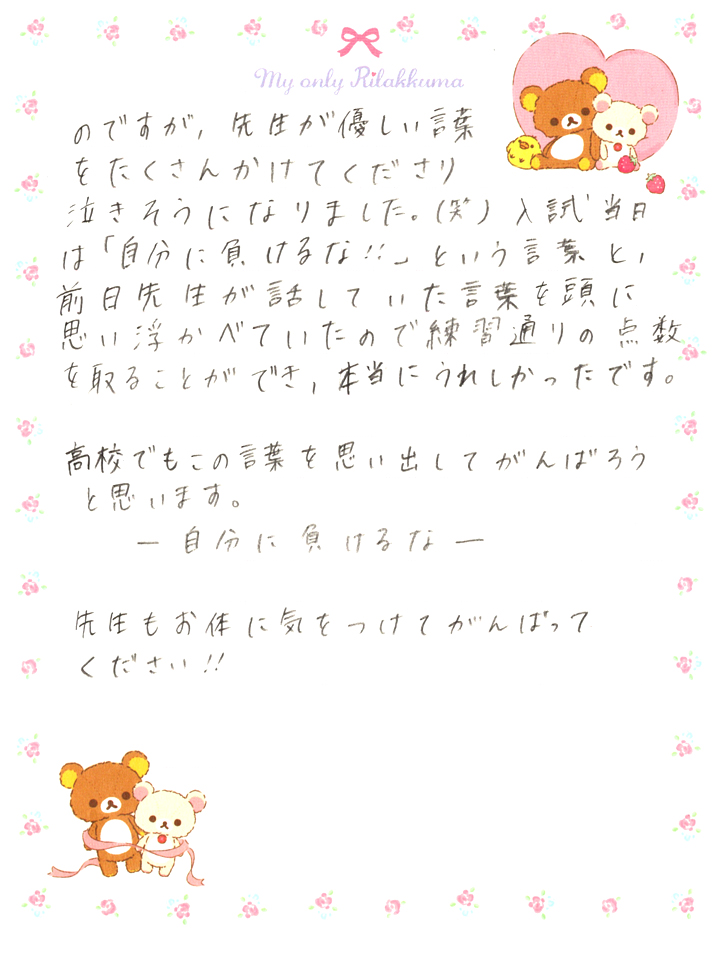 My only Rilakkuma
のですが，先生が優しい言葉
をたくさんかけてくださり
泣きそうになりました。(笑) 入試当日
は「自分に負けるな!!」という言葉と，
前日先生が話していた言葉を頭に
思い浮かべていたので練習通りの点数
を取ることができ，本当にうれしかったです。
高校でもこの言葉を思い出してがんばろう
と思います。
― 自分に負けるな ―
先生もお体に気をつけてがんばって
ください!!